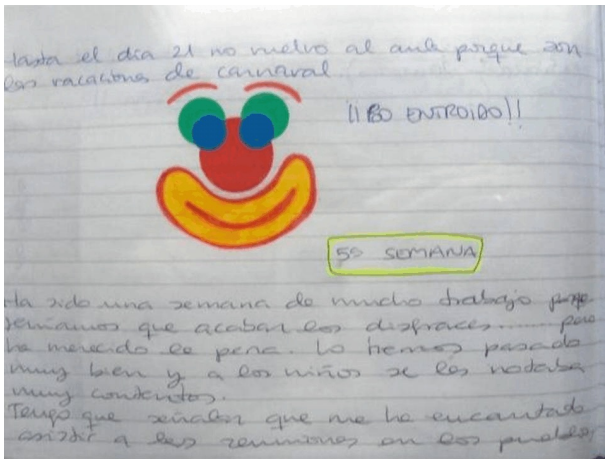 Hasta el día 21 no vuelvo al aula porque son
las vacaciones de carnaval.
¡¡BO ENTROIDO!!
5ª SEMANA
Ha sido una semana de mucho trabajo porque
teníamos que acabar los disfraces...... pero
ha merecido la pena. Lo hemos pasado
muy bien y a los niños se les notaba
muy contentos.
Tengo que señalar que me ha encantado
asistir a las reuniones en los pueblos,